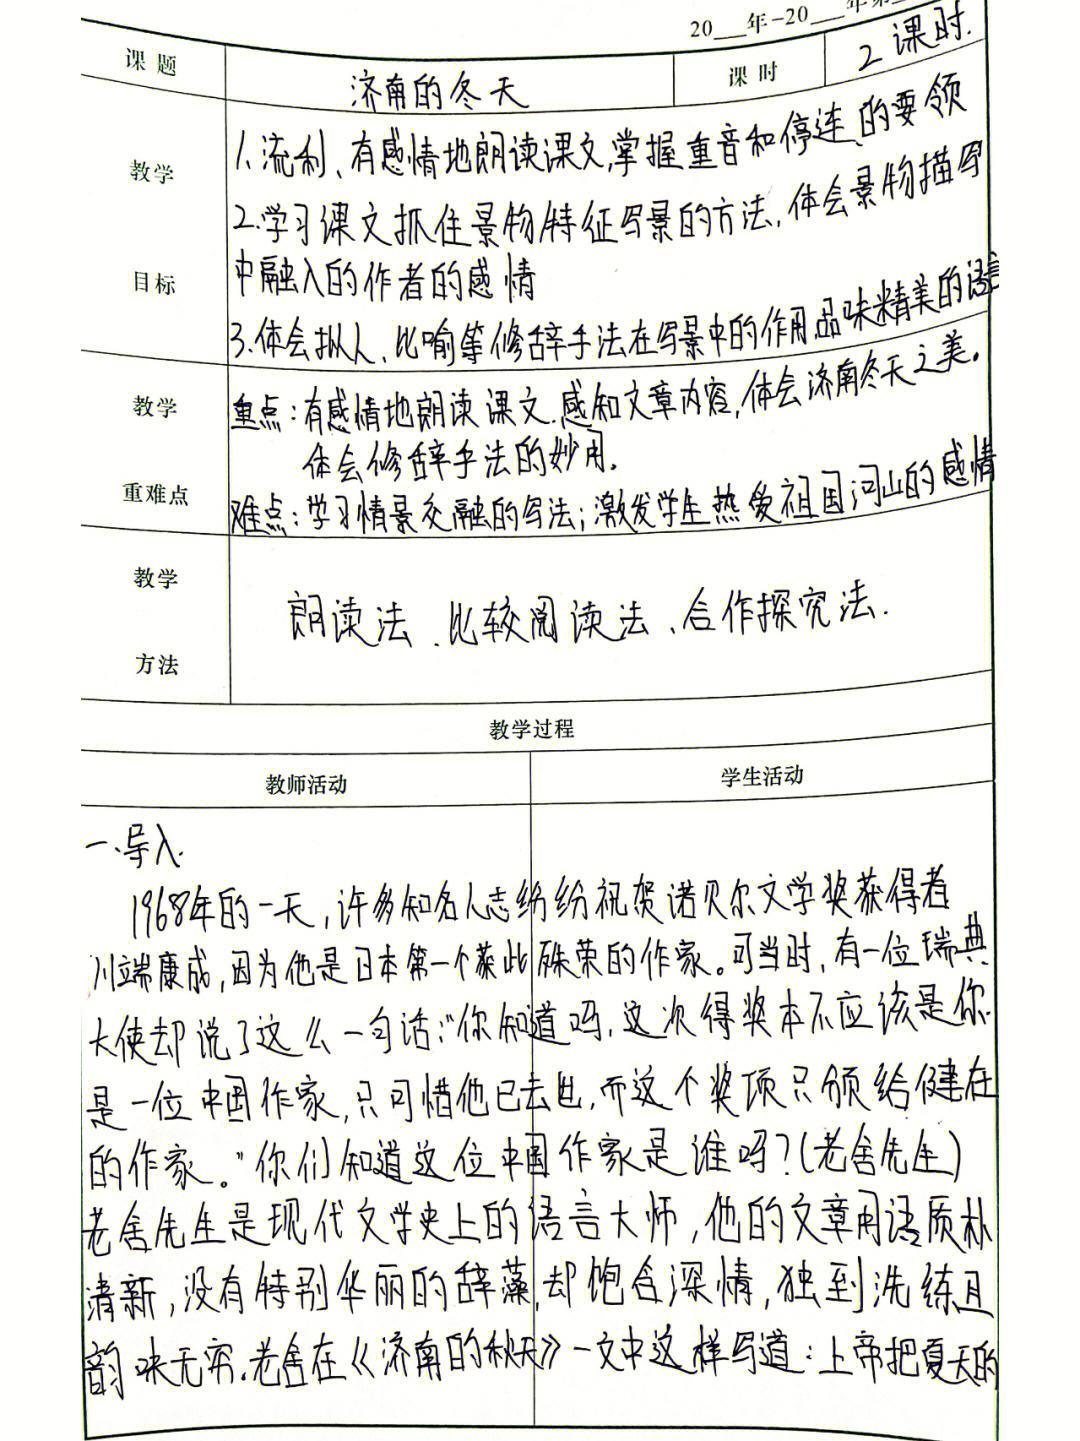 20___年-20___年第
课题 济南的冬天 课时 2课时.
教学目标
1.流利、有感情地朗读课文,掌握重音和停连的要领
2.学习课文抓住景物特征写景的方法,体会景物描写
中融入的作者的感情
3.体会拟人、比喻等修辞手法在写景中的作用,品味精美的语言
教学重难点
重点:有感情地朗读课文.感知文章内容,体会济南冬天之美。
体会修辞手法的妙用.
难点:学习情景交融的写法;激发学生热爱祖国河山的感情
教学方法
朗读法、比较阅读法、合作探究法.
教学过程
教师活动 学生活动
一.导入.
1968年的一天,许多知名人志纷纷祝贺诺贝尔文学奖获得者
川端康成,因为他是日本第一个获此殊荣的作家。可当时,有一位瑞典
大使却说了这么一句话:"你知道吗,这次得奖本不应该是你.
是一位中国作家,只可惜他已去世,而这个奖项只颁给健在
的作家。"你们知道这位中国作家是谁吗?(老舍先生)
老舍先生是现代文学史上的语言大师,他的文章用语质朴
清新,没有特别华丽的辞藻,却饱含深情,独到洗练且
韵味无穷.老舍在《济南的秋天》一文中这样写道:上帝把夏天的